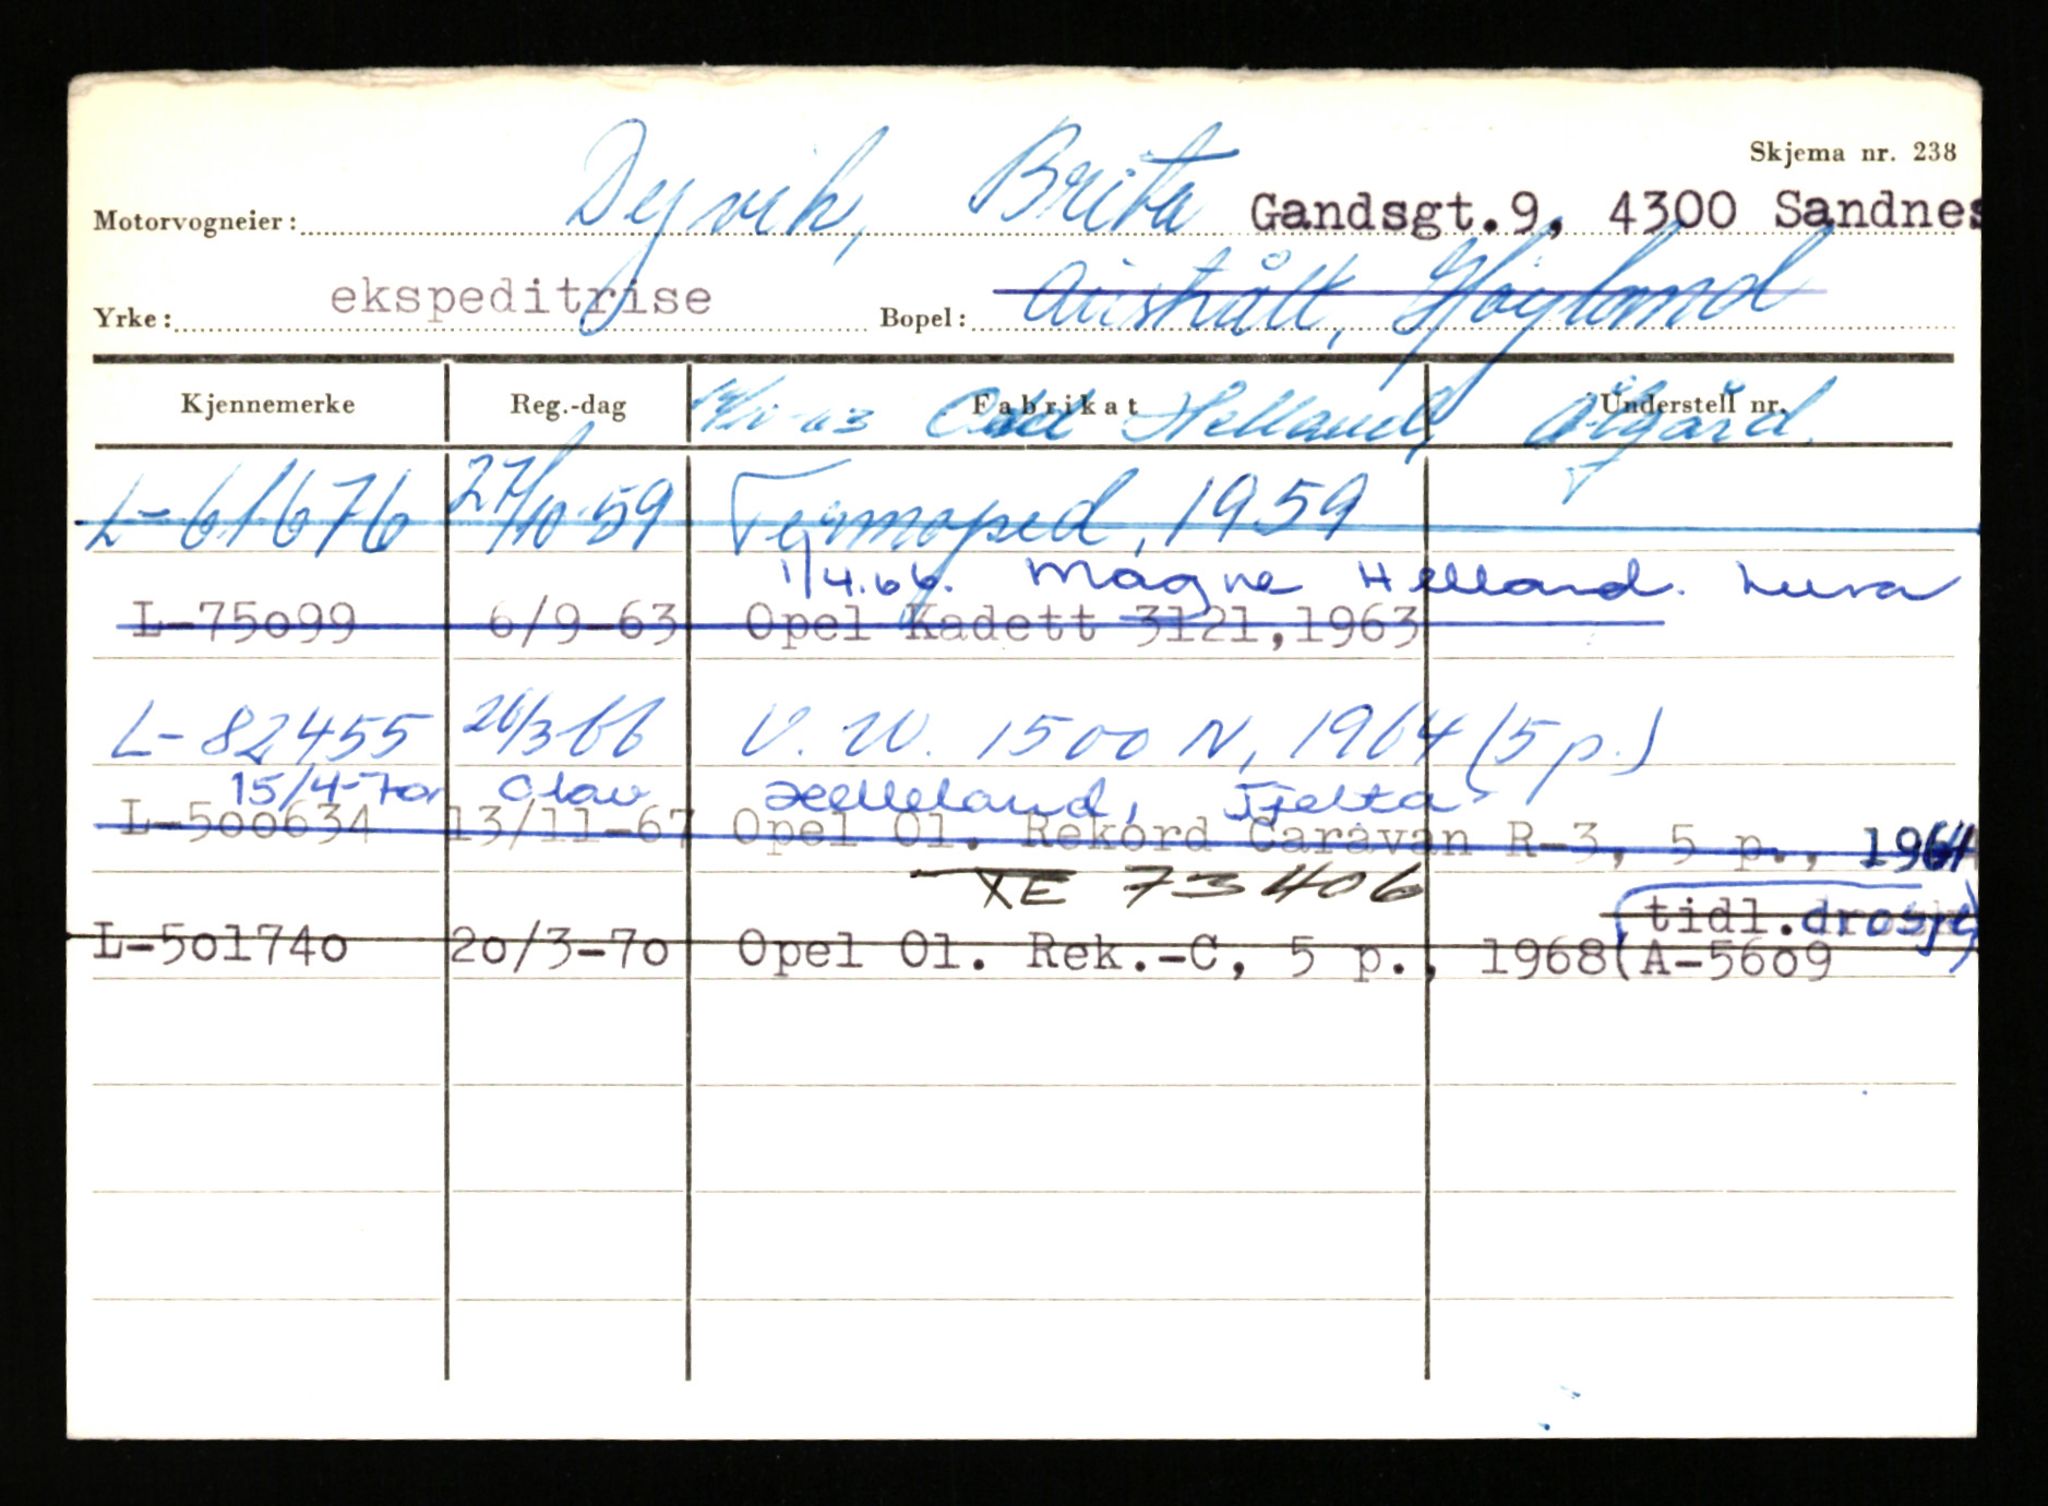 Skjema nr. 238
Motorvogneier: Dyvik, Brita Gandsgt.9, 4300 Sandnes
Yrke: ekspeditrise Bopel: Høyland
Kjennemerke Reg.-dag Fabrikat Understell nr.
Odd Helland, Ålgård.
L-61676 27/10-59 Tempomoped, 1959
1/4.66. Magne Helland. Lura
L-75099 6/9-63 Opel Kadett 3121,1963
L-82455 26/3 66 V.W. 1500 N, 1964 (5 p.)
15/4-70 Olav Helleland, Tjelta
L-500634 13/11-67 Opel Ol. Rekord Caravan R-3, 5 p., 1964
XE 73406
(tidl.drosje)
L-501740 20/3-70 Opel Ol. Rek.-C, 5 p., 1968(A-5609)